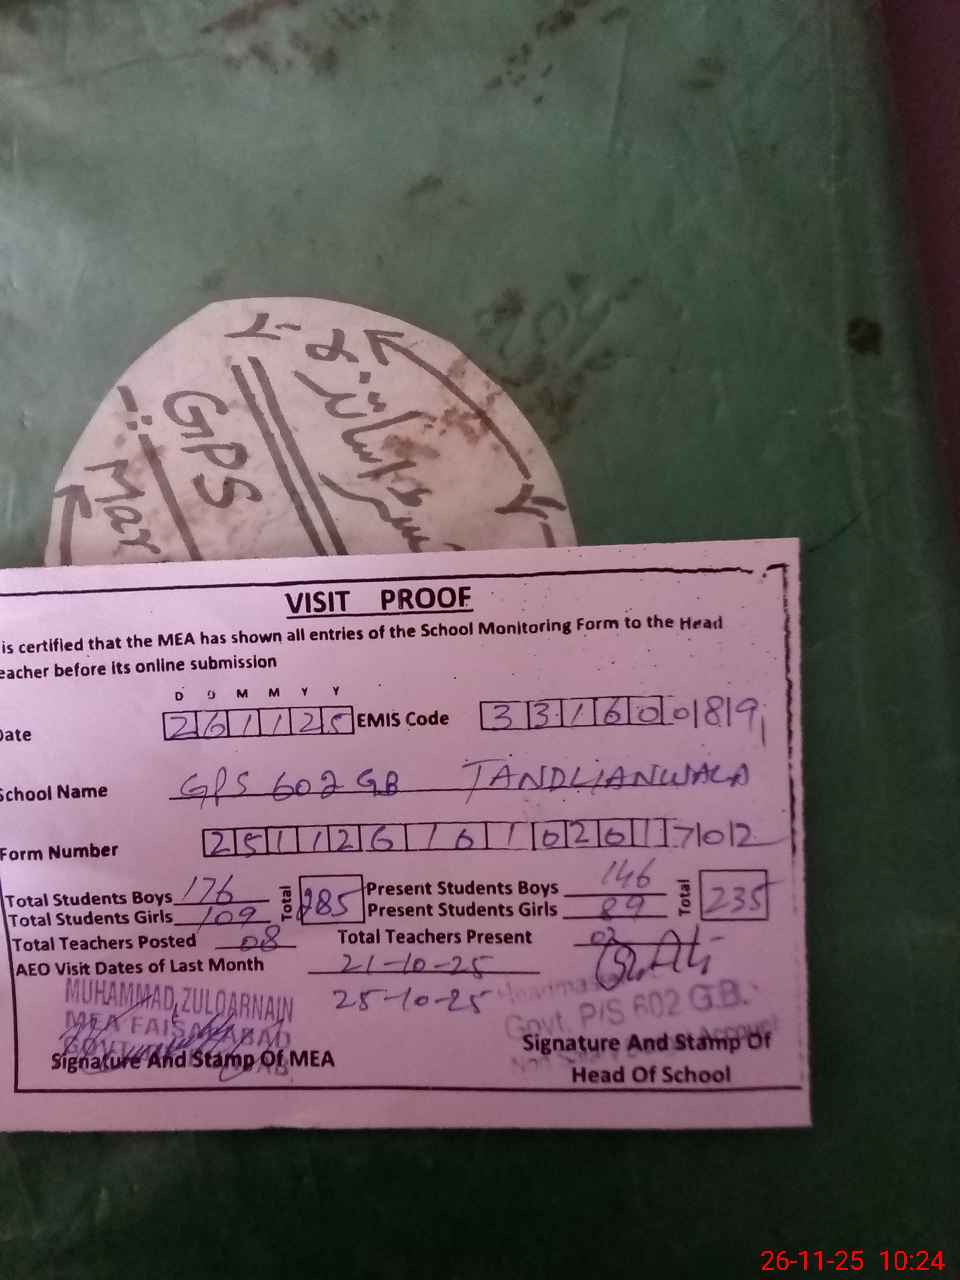 GPS
Mar
VISIT PROOF
is certified that the MEA has shown all entries of the School Monitoring Form to the Head
eacher before its online submission
D D M M Y Y
Date 261125 EMIS Code 33160089
School Name GPS 602 GB TANDLIANWALA
Form Number
Total Students Boys 176 Total 285 Present Students Boys 146 Total 235
Total Students Girls 109 Present Students Girls 89
Total Teachers Posted 08 Total Teachers Present
AEO Visit Dates of Last Month 21-10-25
25-10-25
MUHAMMAD ZULQARNAIN
MEA FAISALABAD
Govt. P/S 602 G.B.
Signature And Stamp Of MEA
Signature And Stamp Of
Head Of School
26-11-25 10:24